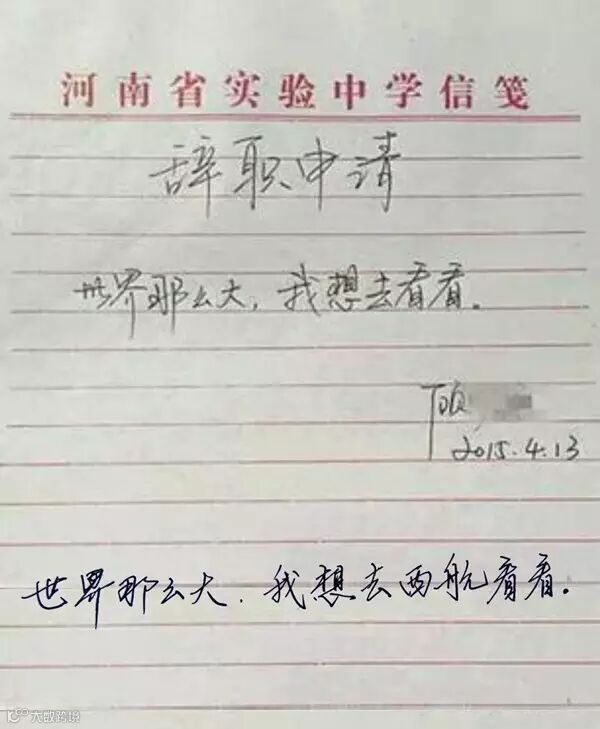 河南省实验中学信笺
辞职申请
世界那么大，我想去看看。
2015.4.13
世界那么大．我想去西航看看．
大数跨境